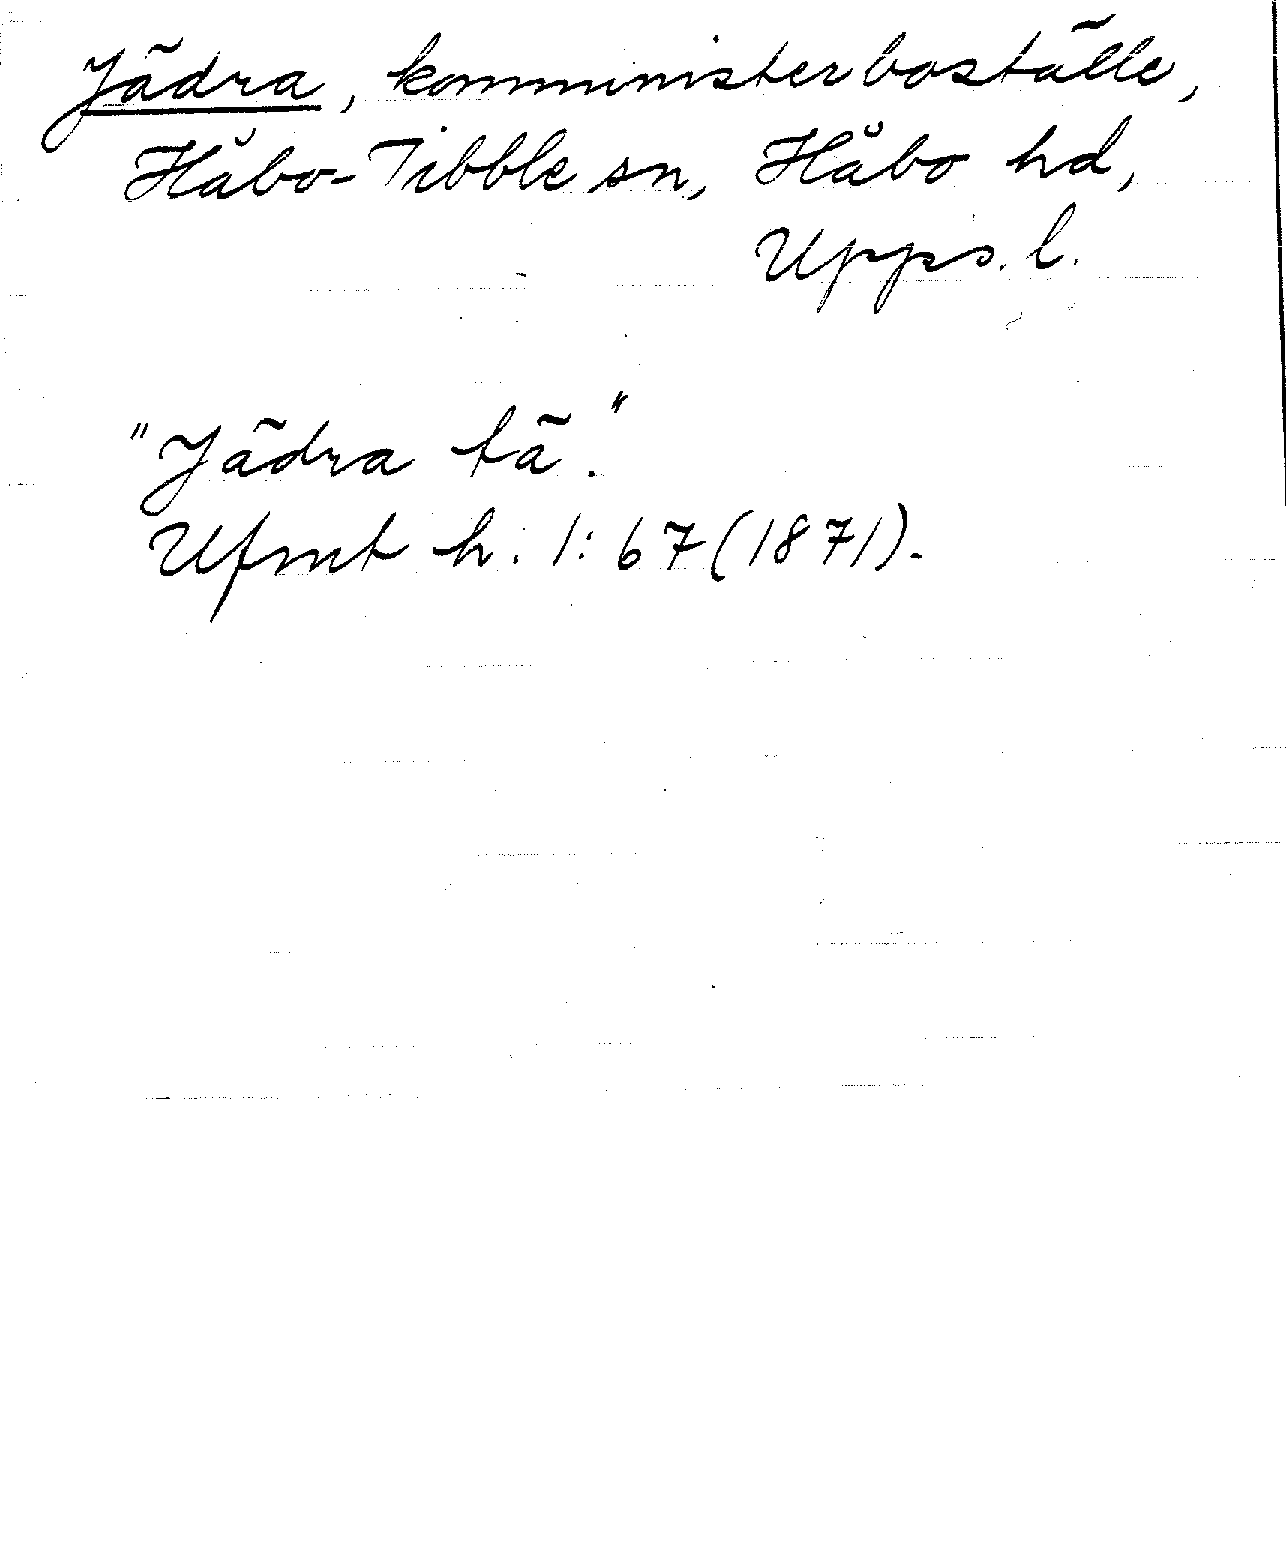 Jädra, komministerboställe,
Håbo-Tibble sn, Håbo hd,
Upps. l.
"Jädra tä."
Ufmt h. 1:67 (1871).